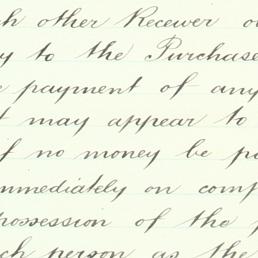 ch other Receiver o
y to the Purchase
e payment of any
t may appear to
if no money be p
immediately on comp
possession of the
ch person as the